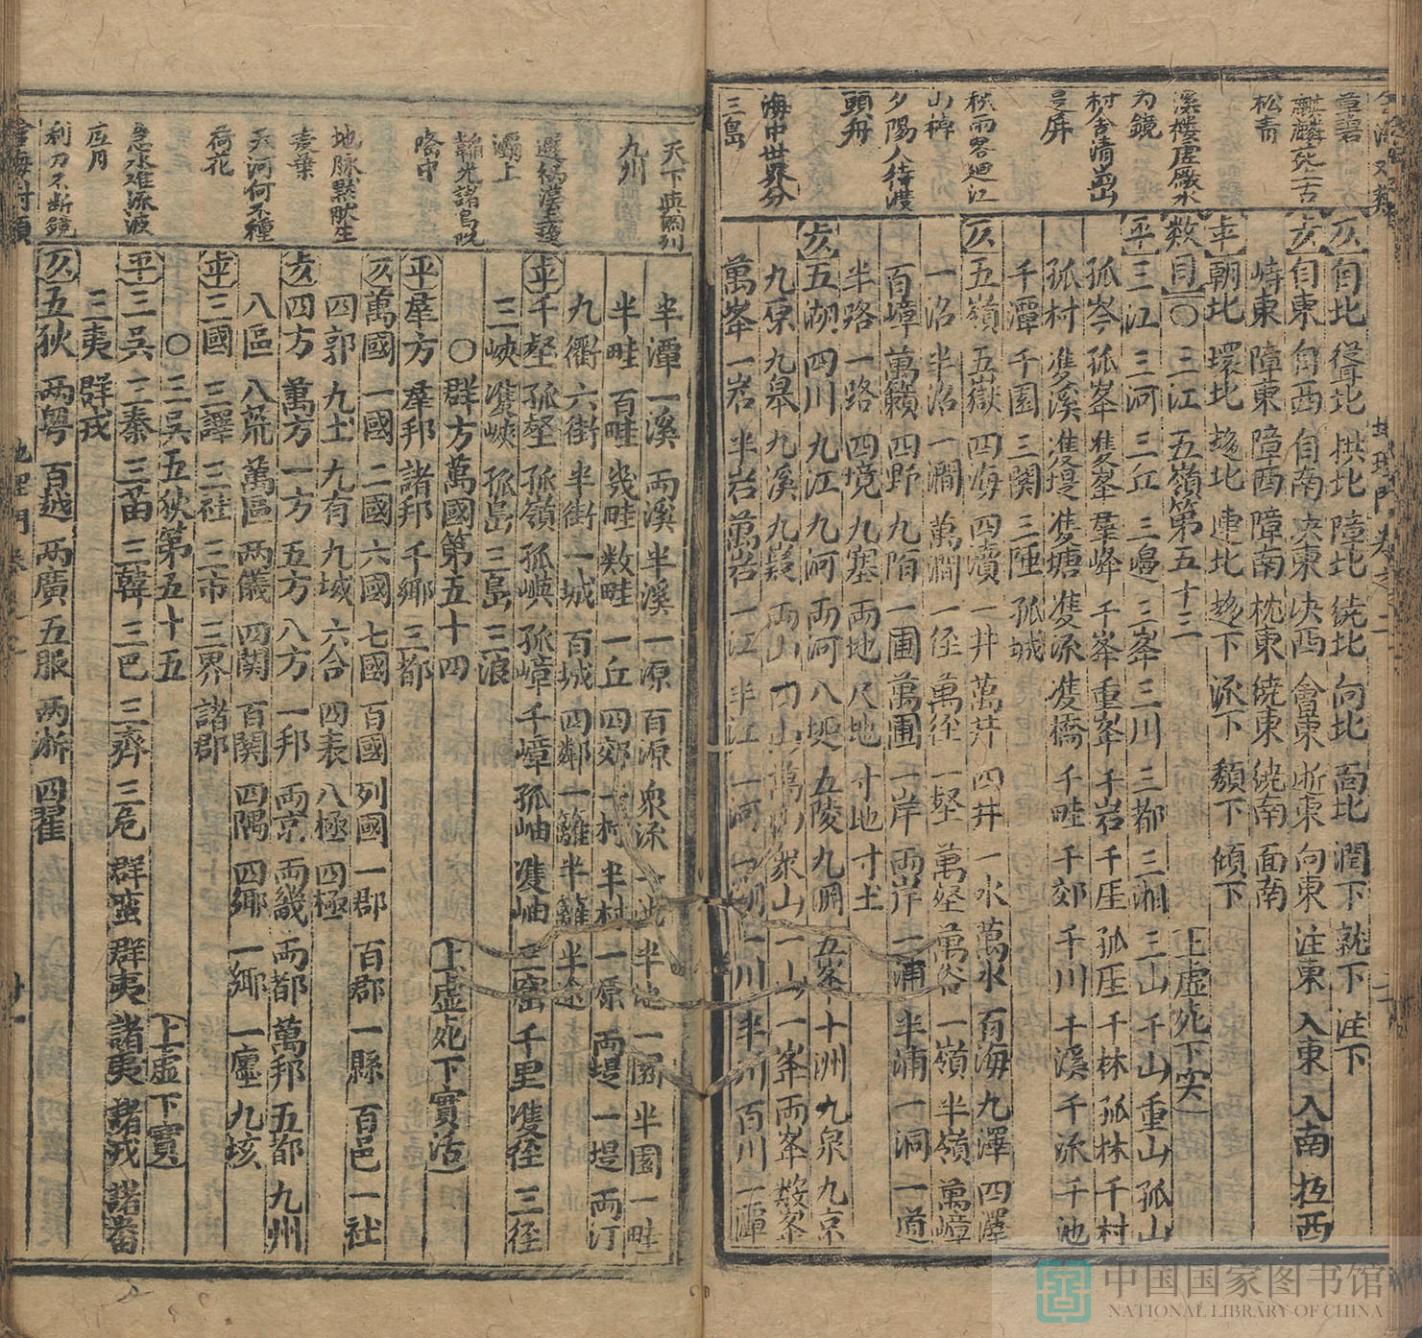 重碧
麒麟死上古
松青
溪樓虛厰水
為鏡
村舍清幽山
是屏
秋雨客廻江
夕陽人待渡
頭舟
海中世界分
三島
自北 從北 拱北 障北 繞北 向北 面北 潤下 就下 注下
自東 自西 自南 夾東 夾西 會東 逝東 向東 注東 入東 入南 拒西
障東 障西 障南 枕東 繞東 繞南 面南
朝北 環北 趨北 連北 趨下 派下 頹下 傾下
數目 〇 三江 五嶺第五十三 上虛死下实
平 三江 三河 三丘 三邊 三峯 三川 三都 三湘 三山 千山 重山 孤山
孤岑 孤峯 隻峯 羣峰 千峯 重峯 千岩 千厓 孤厓 千林 孤林 千村
孤村 隻溪 隻堤 隻塘 隻派 隻橋 千畦 千郊 千川 千溪 千派 千池
千潭 千園 三関 三陲 孤城
仄 五嶺 五嶽 四海 四瀆 一井 萬井 四井 一水 萬水 百海 九澤 四澤
一沼 半沼 一澗 萬澗 一徑 萬徑 一壑 萬壑 萬谷 一嶺 半嶺 萬嶂
百嶂 萬籟 四野 九陌 一圃 萬圃 一岸 兩岸 一浦 半浦 一洞 一道
半路 一路 四境 九塞 兩地 尺地 寸地 寸土
五湖 四川 九江 九河 兩河 八埏 五陵 九淵 五峯 十洲 九泉 九京
九原 九皋 九溪 九嶷 兩山 萬山 衆山 一山 一峯 兩峯 數峯
萬峯 一岩 半岩 萬岩 一江 半江 一河 一湖 一川 半川 百川 一潭
天下輿圖列
九州
灞上
隆中
地脉默默生
天河何不種
荷花
急水难流波
底月
利刀不断鏡
半潭 一溪 兩溪 半溪 一源 百源 衆流 一池 半池 一園 半園 一畦
半畦 百畦 幾畦 数畦 一丘 四郊 一村 半村 一原 兩堤 一堤 兩汀
九衢 六街 半街 一城 百城 四鄰 一籬 半籬 半途
千壑 孤壑 孤嶺 孤嶼 孤嶂 千嶂 孤岫 隻岫 三窟 千里 隻徑 三徑
三峽 隻峽 孤島 三島 三浪
〇 群方 萬國第五十四 上虛死下實活
平 羣方 羣邦 諸邦 千鄉 三都
仄 萬國 一國 二國 六國 七國 百國 列國 一郡 百郡 一縣 百邑 一社
四郭 九土 九有 九域 六合 四表 八極 四極
四方 萬方 一方 五方 八方 一邦 兩京 兩畿 兩都 萬邦 五都 九州
八區 八荒 萬區 两儀 四関 百関 四隅 四鄉 一鄉 一廛 九垓
三國 三譯 三社 三市 三界 諸郡
〇 三吳 五狄第五十五 上虛下實
平 三吳 三秦 三苗 三韓 三巴 三齊 三危 群蛮 群夷 諸夷 諸戎 諸蕃
三夷 群戎
仄 五狄 两粵 百越 两廣 五服 两浙 四翟
中国国家图书馆
NATIONAL LIBRARY OF CHINA